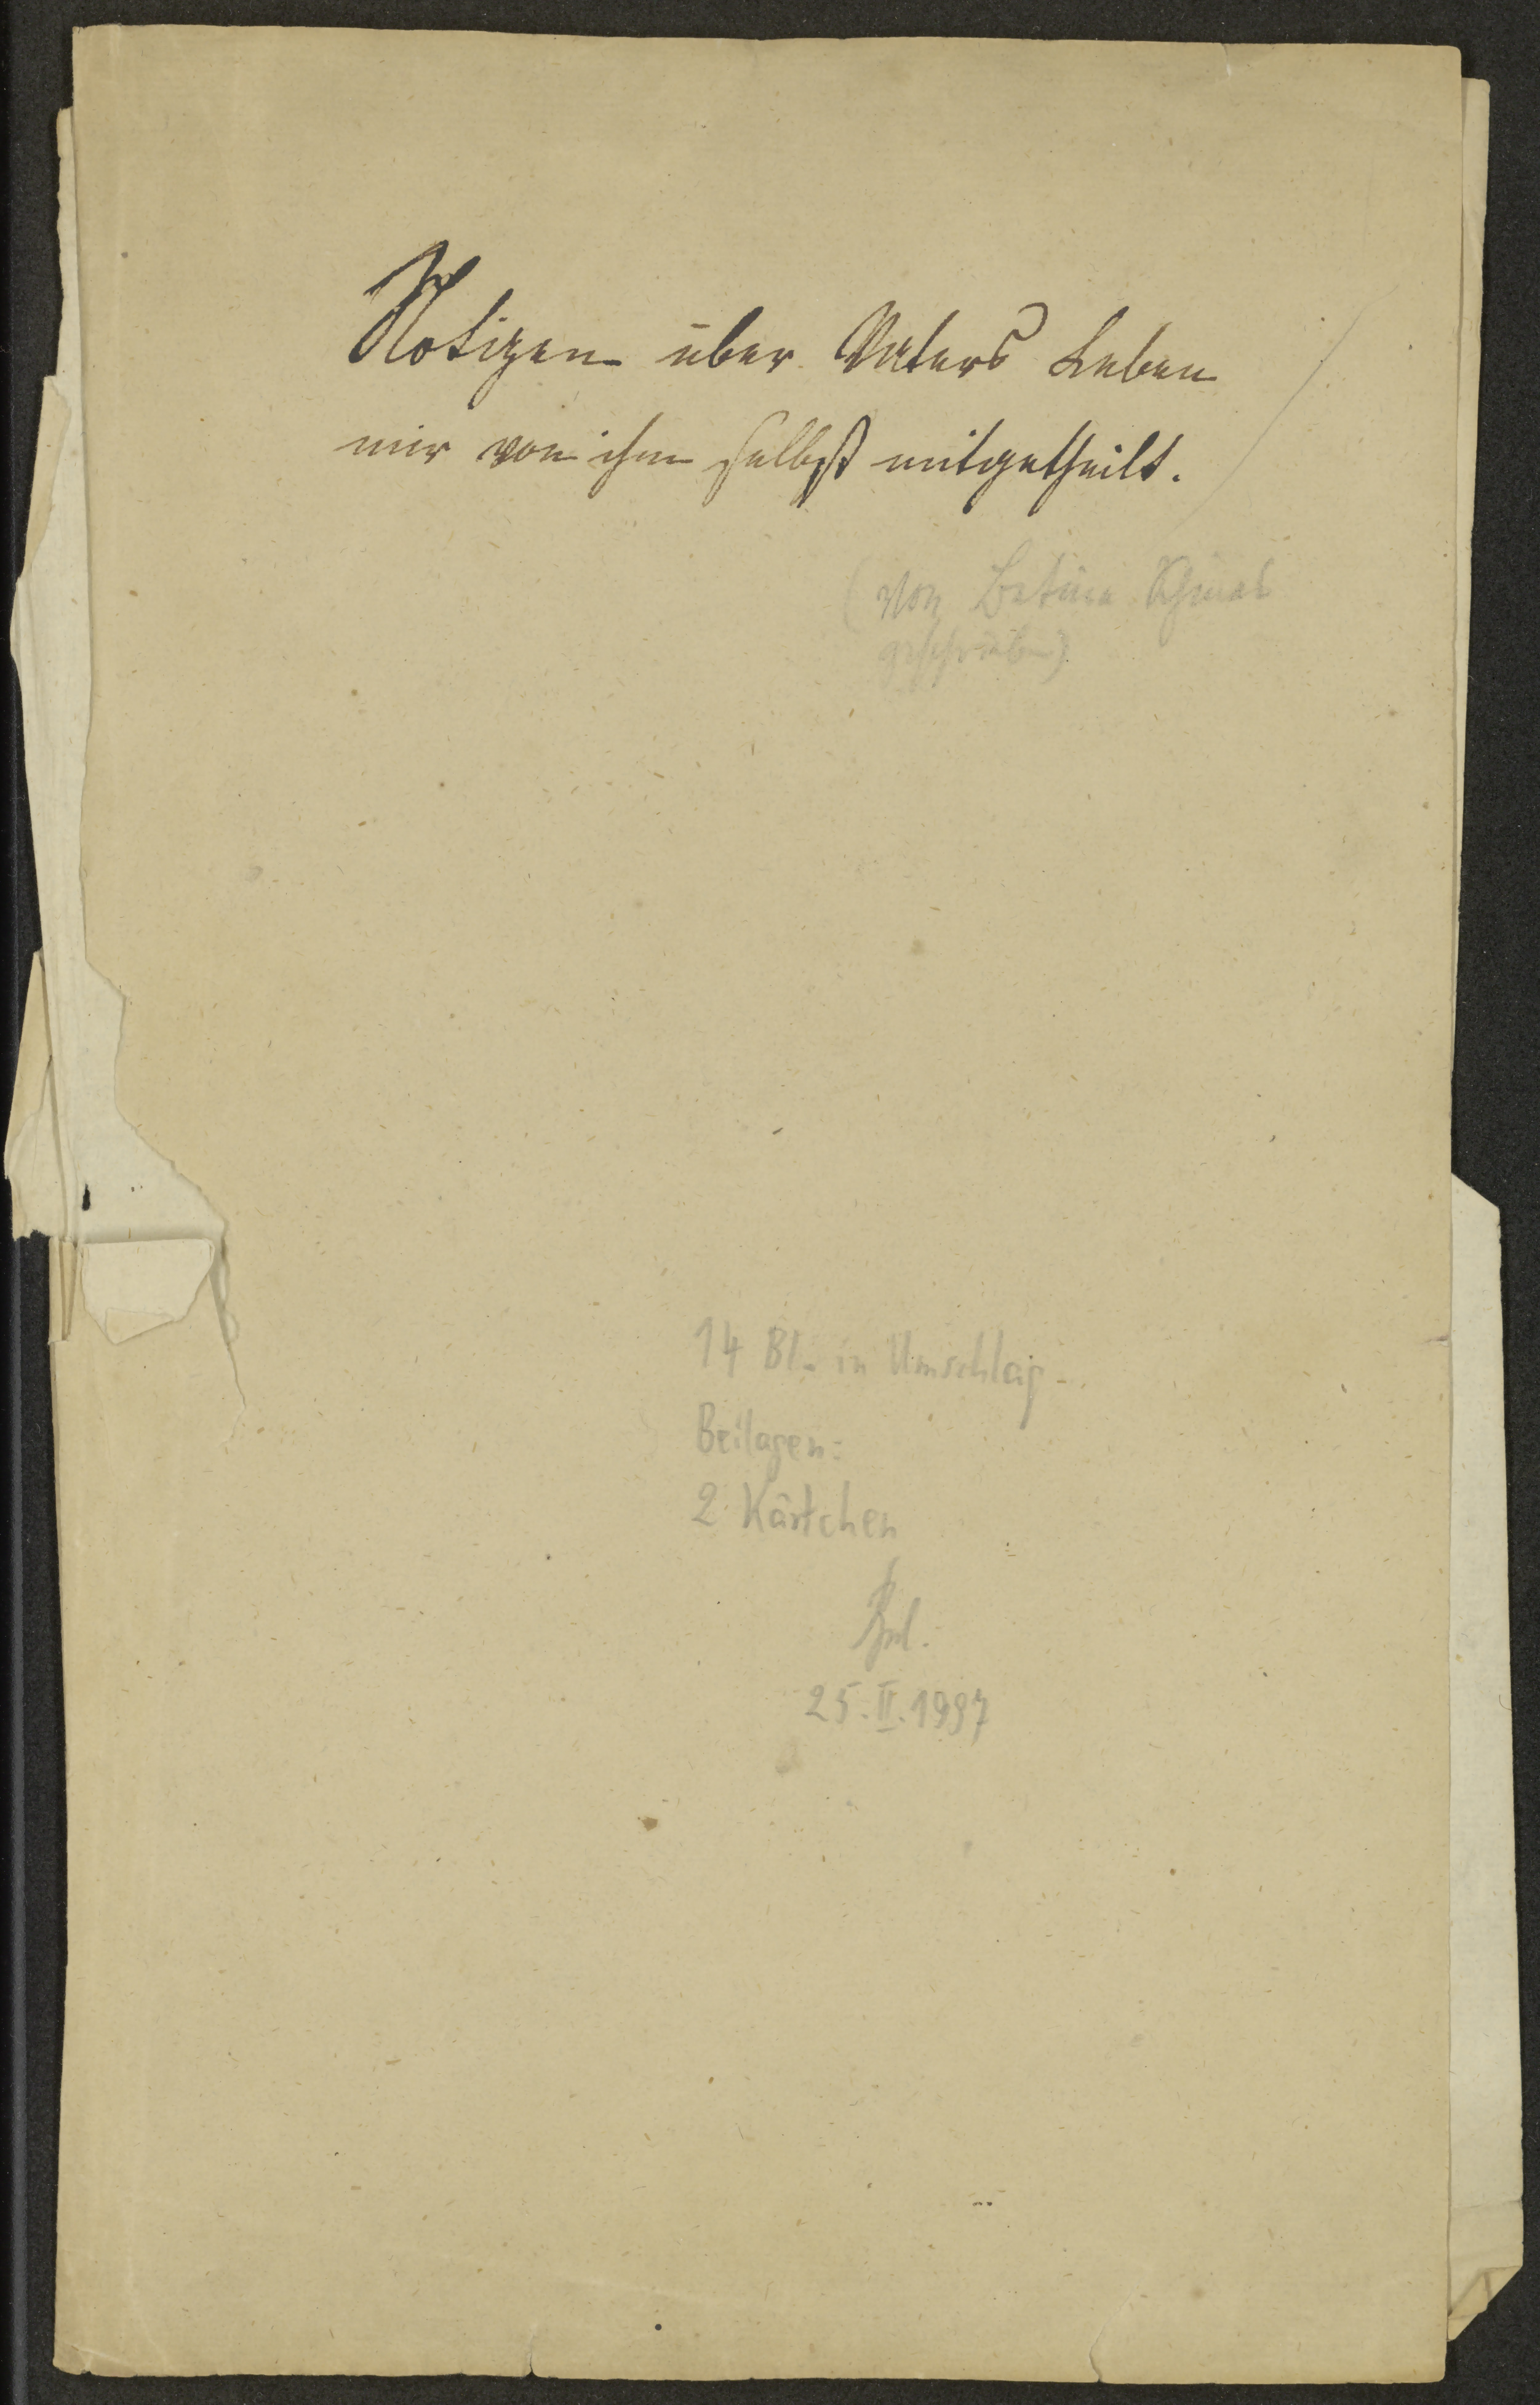 Notizen über Vaters Leben
mir von ihm selbst mitgetheilt.
(von Betina
geschrieben)
14 Bl. in Umschlag.
Beilagen:
2 Kärtchen
25.II.1997